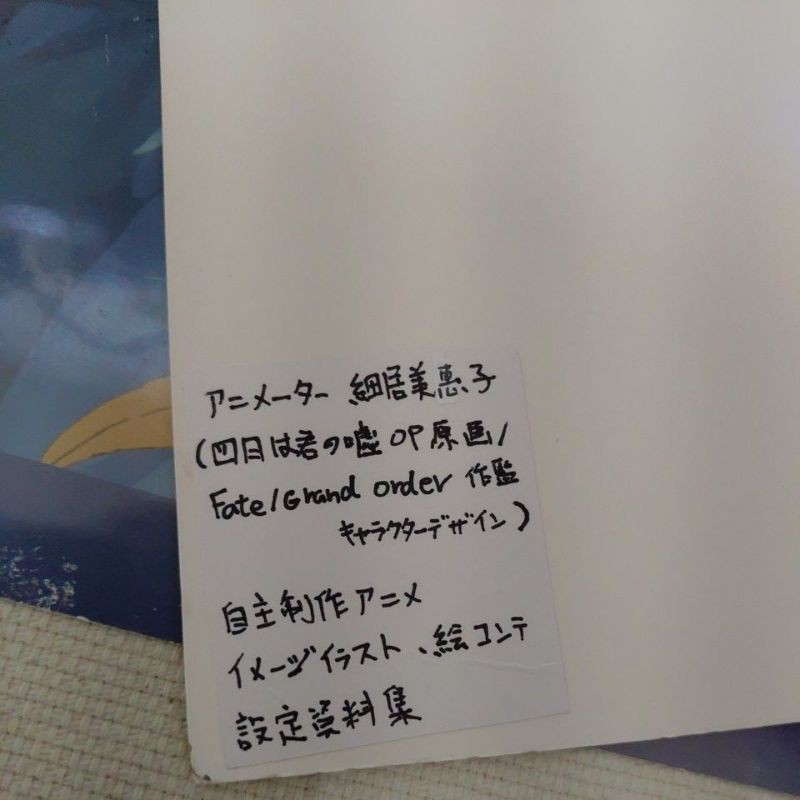 アニメーター 細居美恵子
(四月は君の嘘 OP原画/
Fate/Grand order 作監
キャラクターデザイン)
自主制作アニメ
イメージイラスト、絵コンテ
設定資料集